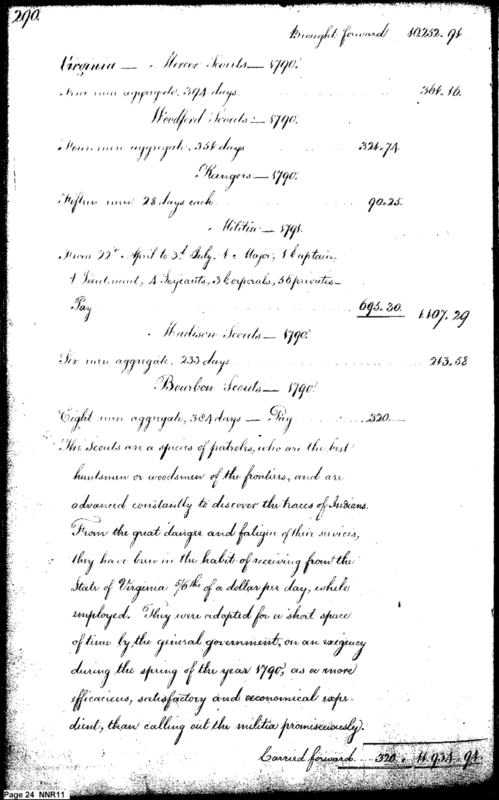 290.
Brought forward 10252.91
Virginia — Mercer Scouts — 1790.
men aggregate, 394 days 361.16.
Woodford Scouts — 1790.
Four men aggregate, 354 days 324.74
Rangers — 1790.
Fifteen men 28 days each 90.25.
Militia — 1791.
From 22d April to 3d July, 1 Major, 1 Captain,
1 Lieutenant, 4 Serjeants, 3 Corporals, 56 privates —
Pay 695.30. 1107.29
Madison Scouts — 1790.
Six men aggregate, 233 days 213.58
Bourbon Scouts — 1790.
Eight men aggregate, 384 days — Pay 320.—
The Scouts are a species of patroles, who are the best
huntsmen or woodsmen of the frontiers, and are
advanced constantly to discover the traces of Indians.
From the great danger and fatigue of their services,
they have been in the habit of receiving from the
State of Virginia 5/6ths of a dollar per day, while
employed. They were adopted for a short space
of time by the general government, on an exigency
during the spring of the year 1790, as a more
efficacious, satisfactory and oeconomical expe-
dient, than calling out the militia promiscuously.
Carried forward 320. 11.934.94
Page 24 NNR11